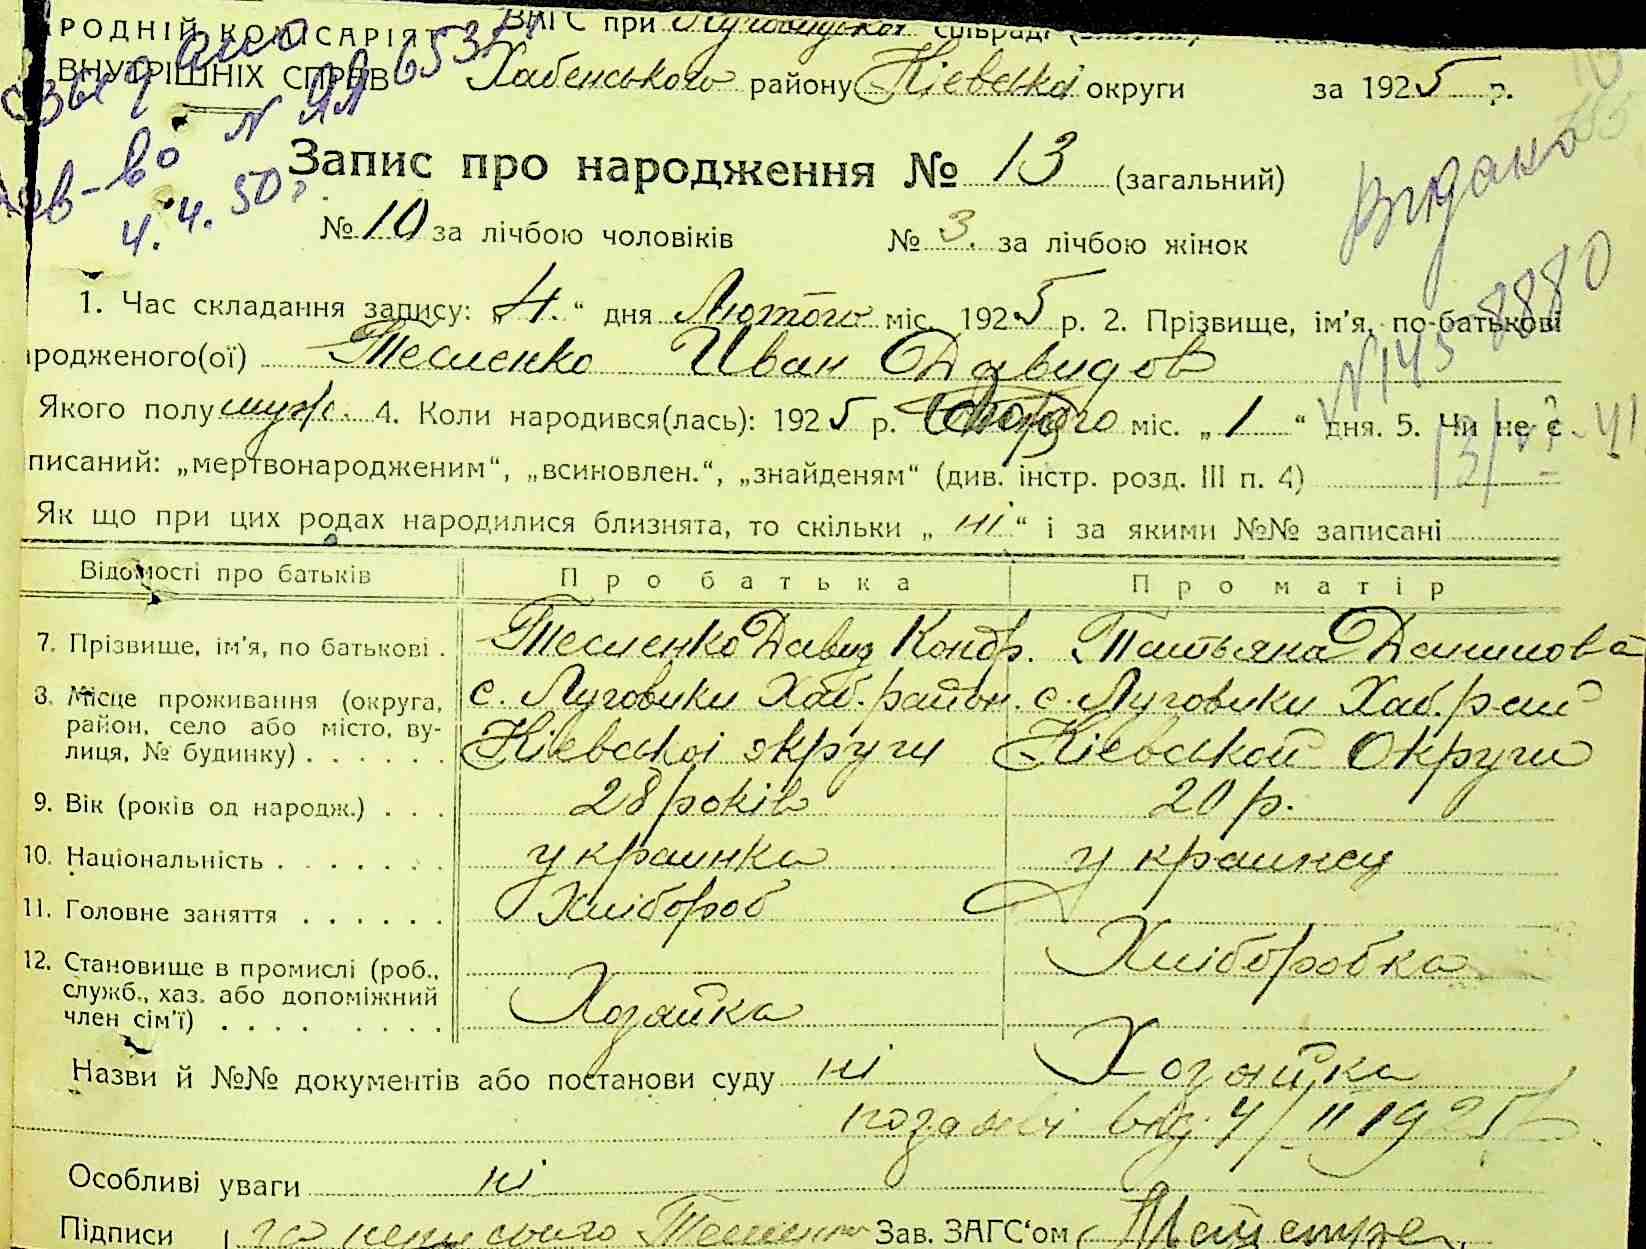 РОДНІЙ КОМІСАРІЯТ
ВНУТРІШНІХ СПРАВ
ВАГС при Луговицской співраді
Хабенського району Кіевської округи за 1925 р.
4.4.50 г.
Запис про народження № 13 (загальний)
№ 10 за лічбою чоловіків № 3. за лічбою жінок
Видано
N 145 8880
1. Час складання запису: „4.“ дня Лютого міс. 1925 р. 2. Прізвище, ім'я, по-батькові
родженого(ої) Тесленко Иван Давидов
Якого полу муж. 4. Коли народився(лась): 1925 р. Лютого міс. „1“ дня. 5. Чи не є
писаний: „мертвонародженим“, „всиновлен.“, „знайденям“ (див. інстр. розд. III п. 4)
Як що при цих родах народилися близнята, то скільки „ні“ і за якими №№ записані
Відомості про батьків Про батька Про матір
7. Прізвище, ім'я, по батькові . Тесленко Давид Кондр. Татьяна Данилова
8. Місце проживання (округа, район, село або місто, вулиця, № будинку) . . . . . . с. Луговики Хаб. район. с. Луговики Хаб. рай
Кіевської округи Кіевской Округи
9. Вік (років од народж.) . . . 28 років 20 р.
10. Національність . . . . . . . украинка украинсу
11. Головне заняття . . . . . . Хлібороб Хліборобка
12. Становище в промислі (роб., служб., хаз. або допоміжний член сім'ї) . . . . . . . . Хозяйка Хозяйка
Назви й №№ документів або постанови суду ні
4/II 1925
Особливі уваги ні
Підписи Тесленко Зав. ЗАГС'ом